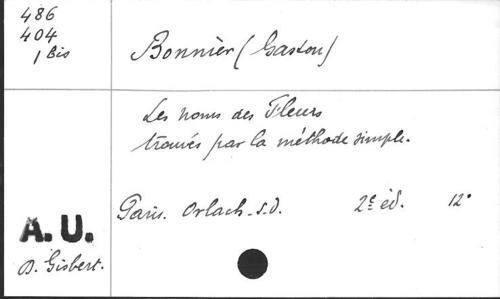 486
404
1 Bis
Bonnier (Gaston)
Les noms des Fleurs
trouvés par la méthode simple.
Paris. Orlach. s.d. 2e éd. 12°
A.U.
D. Gisbert.